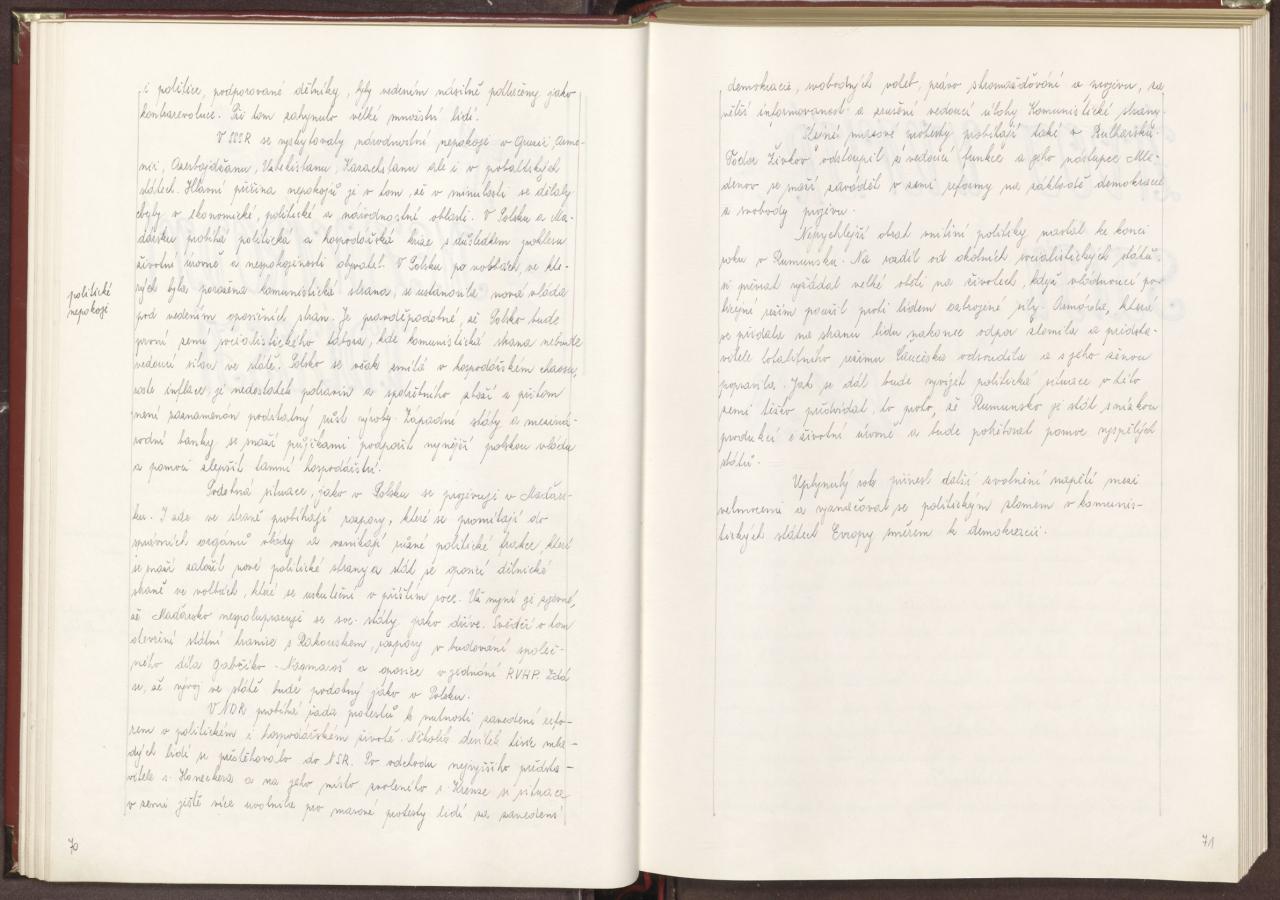 i politice, podporované dělníky, byly vedením násilně potlačeny jako
kontrarevoluce. Při tom zahynulo velké množství lidí.
V SSSR se vyskytovaly národnostní nepokoje v Gruzii, Armé-
nii, Azerbajdžanu, Uzbekistanu, Kazachstanu ale i v pobaltských
státech. Hlavní příčina nepokojů je v tom, že v minulosti se dělaly
chyby v ekonomické, politické a národnostní oblasti. V Polsku a Ma-
ďarsku probíhá politická a hospodářská krize s důsledkem poklesu
životní úrovně a nespokojenosti obyvatel. V Polsku po volbách, ve kte-
rých byla poražena komunistická strana, se ustanovila nová vláda
pod vedením oposičních stran. Je pravděpodobné, že Polsko bude
první zemí socialistického tábora, kde komunistická strana nebude
vedoucí silou ve státě. Polsko se však zmítá v hospodářském chaosu,
roste inflace, je nedostatek potravin a spotřebního zboží a přitom
není zaznamenán podstatný růst výroby. Západní státy a meziná-
rodní banky se snaží půjčkami podpořit nynější polskou vládu
a pomoci zlepšit tamní hospodářství.
politické
nepokoje
Podobná situace, jako v Polsku se projevuje v Maďar-
sku. I zde ve straně probíhají rozpory, které se promítají do
správních orgánů vlády a vznikají různé politické frakce, které
se snaží založit nové politické strany a stát se oponcí dělnické
straně ve volbách, které se uskuteční v příštím roce. Už nyní je zjevné,
že Maďarsko nespolupracuje se soc. státy jako dříve. Svědčí o tom
otevření státní hranice s Rakouskem, rozpory v budování společ-
ného díla Gabčíko - Nagymaroš a oposice v jednání RVHP. Zdá
se, že vývoj ve státě bude podobný jako v Polsku.
V NDR probíhá řada protestů k nutnosti zavedení refo-
rem v politickém i hospodářském životě. Několik desítek tisíc mla-
dých lidí se přestěhovalo do NSR. Po odchodu nejvyššího předsta-
vitele s. Honeckera a na jeho místo zvoleného s. Krenze se situace
v zemi ještě více uvolnila pro masové protesty lidí za zavedení
70
demokracie, svobodných voleb, právo shromažďování a projevu, za
větší informovanost a zrušení vedoucí úlohy Komunistické strany.
Stejné masové protesty probíhají také v Bulharsku.
Todor Živkov odstoupil z vedoucí funkce a jeho nástupce Mla-
denov se snaží zavádět v zemi reformy na základě demokracie
a svobody projevu.
Nejrychlejší obrat vnitřní politiky nastal ke konci
roku v Rumunsku. Na rozdíl od okolních socialistických států
si převrat vyžádal velké oběti na životech, když vládnoucí po-
licejní režim použil proti lidem ozbrojené síly. Armáda, která
se přidala na stranu lidu nakonec odpor zlomila a předsta-
vitele totalitního režimu Čaučeska odsoudila a s jeho ženou
popravila. Jak se dál bude vyvíjet politická situace v této
zemi těžko předvídat, to proto, že Rumunsko je stát s nízkou
produkcí i životní úrovně a bude potřebovat pomoc vyspělých
států.
Uplynulý rok přinesl další uvolnění napětí mezi
velmocemi a vyznačoval se politickým zlomem v komunis-
tických státech Evropy směrem k demokracii.
71